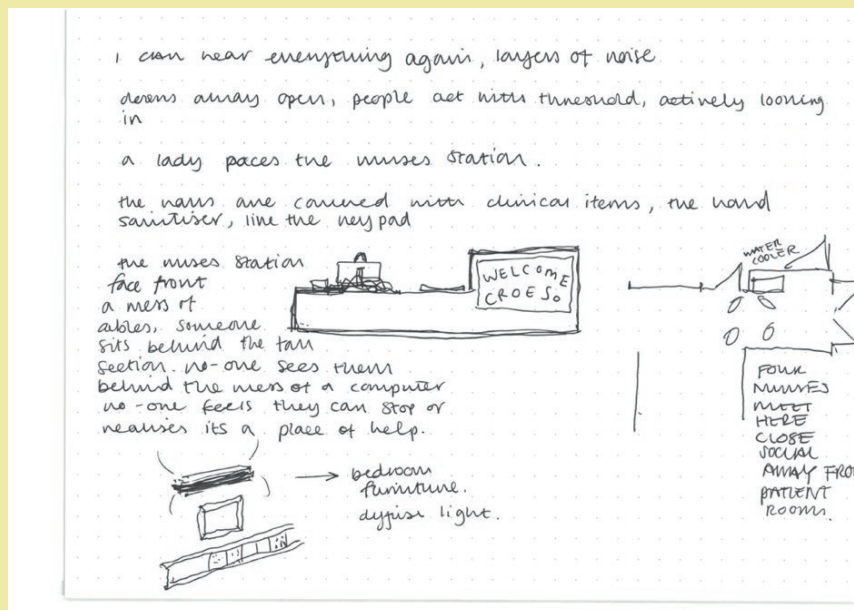 I can hear everything again, layers of noise
doors always open, people act with threshold, actively looking
in
a lady paces the nurses station.
the walls are covered with clinical items, the hand
sanitiser, line the key pad
the nurses station
face front
a mess of
cables, someone
sits behind the tall
section. no-one sees them
behind the mess of a computer
no-one feels they can stop or
realises its a place of help.
WELCOME
CROESO
WATER
COOLER
FOUR
NURSES
MEET
HERE
CLOSE
SOCIAL
AWAY FRO
PATIENT
ROOMS.
bedroom
furniture.
diffuse light.